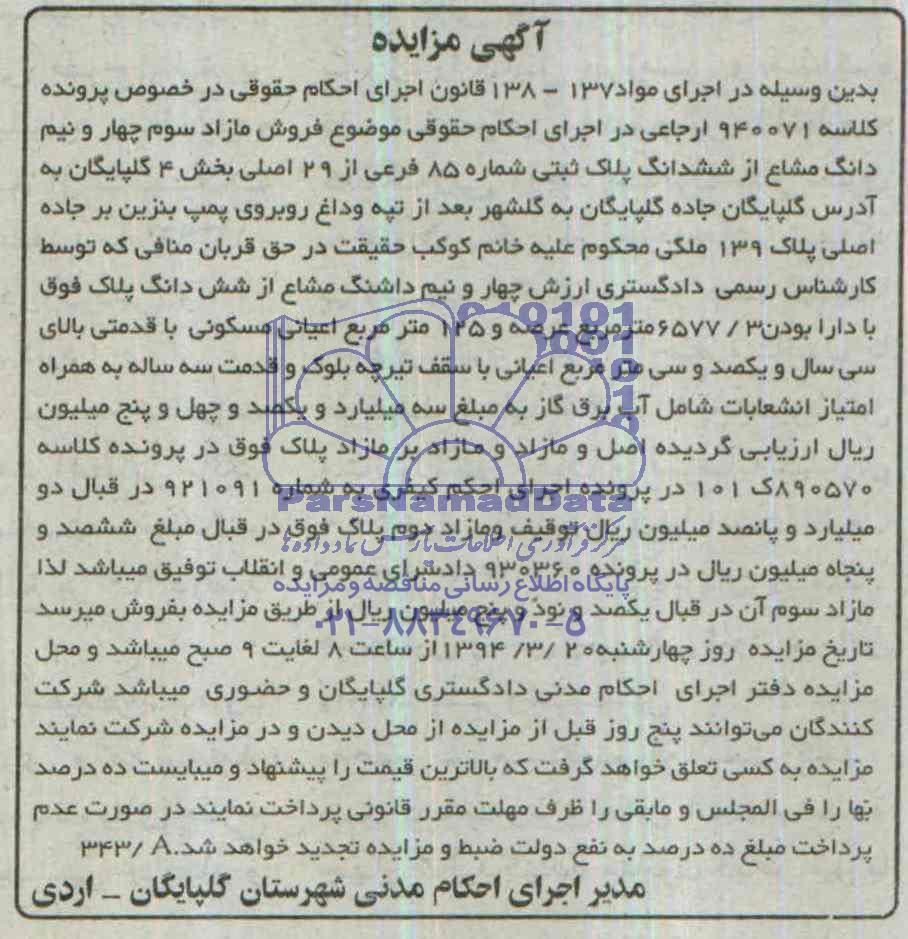 آگهی مزایده
بدین وسیله در اجرای مواد۱۳۷ – ۱۳۸ قانون اجرای احکام حقوقی در خصوص پرونده
کلاسه ۹۴۰۰۷۱ ارجاعی در اجرای احکام حقوقی موضوع فروش مازاد سوم چهار و نیم
دانگ مشاع از ششدانگ پلاک ثبتی شماره ۸۵ فرعی از ۲۹ اصلی بخش ۴ گلپایگان به
آدرس گلپایگان جاده گلپایگان به گلشهر بعد از تپه وداغ روبروی پمپ بنزین بر جاده
اصلی پلاک ۱۳۹ ملکی محکوم علیه خانم کوکب حقیقت در حق قربان منافی که توسط
کارشناس رسمی دادگستری ارزش چهار و نیم داشنگ مشاع از شش دانگ پلاک فوق
با دارا بودن۳ / ۶۵۷۷مترمربع عرصه و ۱۲۵ متر مربع اعیانی مسکونی با قدمتی بالای
سی سال و یکصد و سی متر مربع اعیانی با سقف تیرچه بلوک و قدمت سه ساله به همراه
امتیاز انشعابات شامل آب برق گاز به مبلغ سه میلیارد و یکصد و چهل و پنج میلیون
ریال ارزیابی گردیده اصل و مازاد و مازاد بر مازاد پلاک فوق در پرونده کلاسه
۸۹۰۵۷۰ک ۱۰۱ در پرونده اجرای احکم کیفری به شماره ۹۲۱۰۹۱ در قبال دو
میلیارد و پانصد میلیون ریال توقیف ومازاد دوم پلاک فوق در قبال مبلغ ششصد و
پنجاه میلیون ریال در پرونده ۹۳۰۳۶۰ دادسرای عمومی و انقلاب توفیق میباشد لذا
مازاد سوم آن در قبال یکصد و نود و پنج میلیون ریال از طریق مزایده بفروش میرسد
تاریخ مزایده روز چهارشنبه۲۰ /۳/ ۱۳۹۴از ساعت ۸ لغایت ۹ صبح میباشد و محل
مزایده دفتر اجرای احکام مدنی دادگستری گلپایگان و حضوری میباشد شرکت
کنندگان می‌توانند پنج روز قبل از مزایده از محل دیدن و در مزایده شرکت نمایند
مزایده به کسی تعلق خواهد گرفت که بالاترین قیمت را پیشنهاد و میبایست ده درصد
بها را فی المجلس و مابقی را ظرف مهلت مقرر قانونی پرداخت نمایند در صورت عدم
پرداخت مبلغ ده درصد به نفع دولت ضبط و مزایده تجدید خواهد شد.۳۴۳/ A
مدیر اجرای احکام مدنی شهرستان گلپایگان – اردی
ParsNamadData
مرکز فرآوری اطلاعات پارس نماد داده ها
پایگاه اطلاع رسانی مناقصه و مزایده
۰۲۱-۸۸۳۴۹۶۷۰-۵